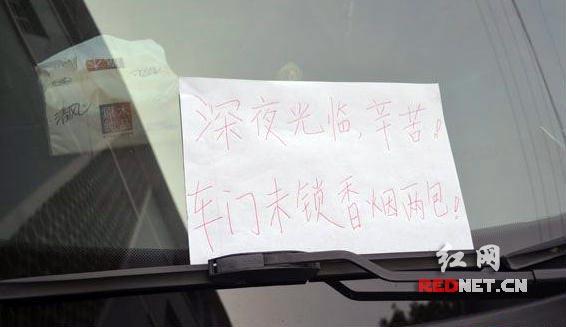 深夜光临,辛苦!
车门未锁香烟两包!
清风
红网
REDNET.CN